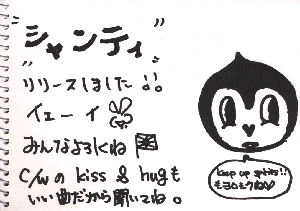 "シャンティ"
リリースしました!!
イェーイ
みんなよろしくね
C/Wの kiss & hugも
いい曲だから聞いてね。
keep up spirits!!
モヨロシクネ